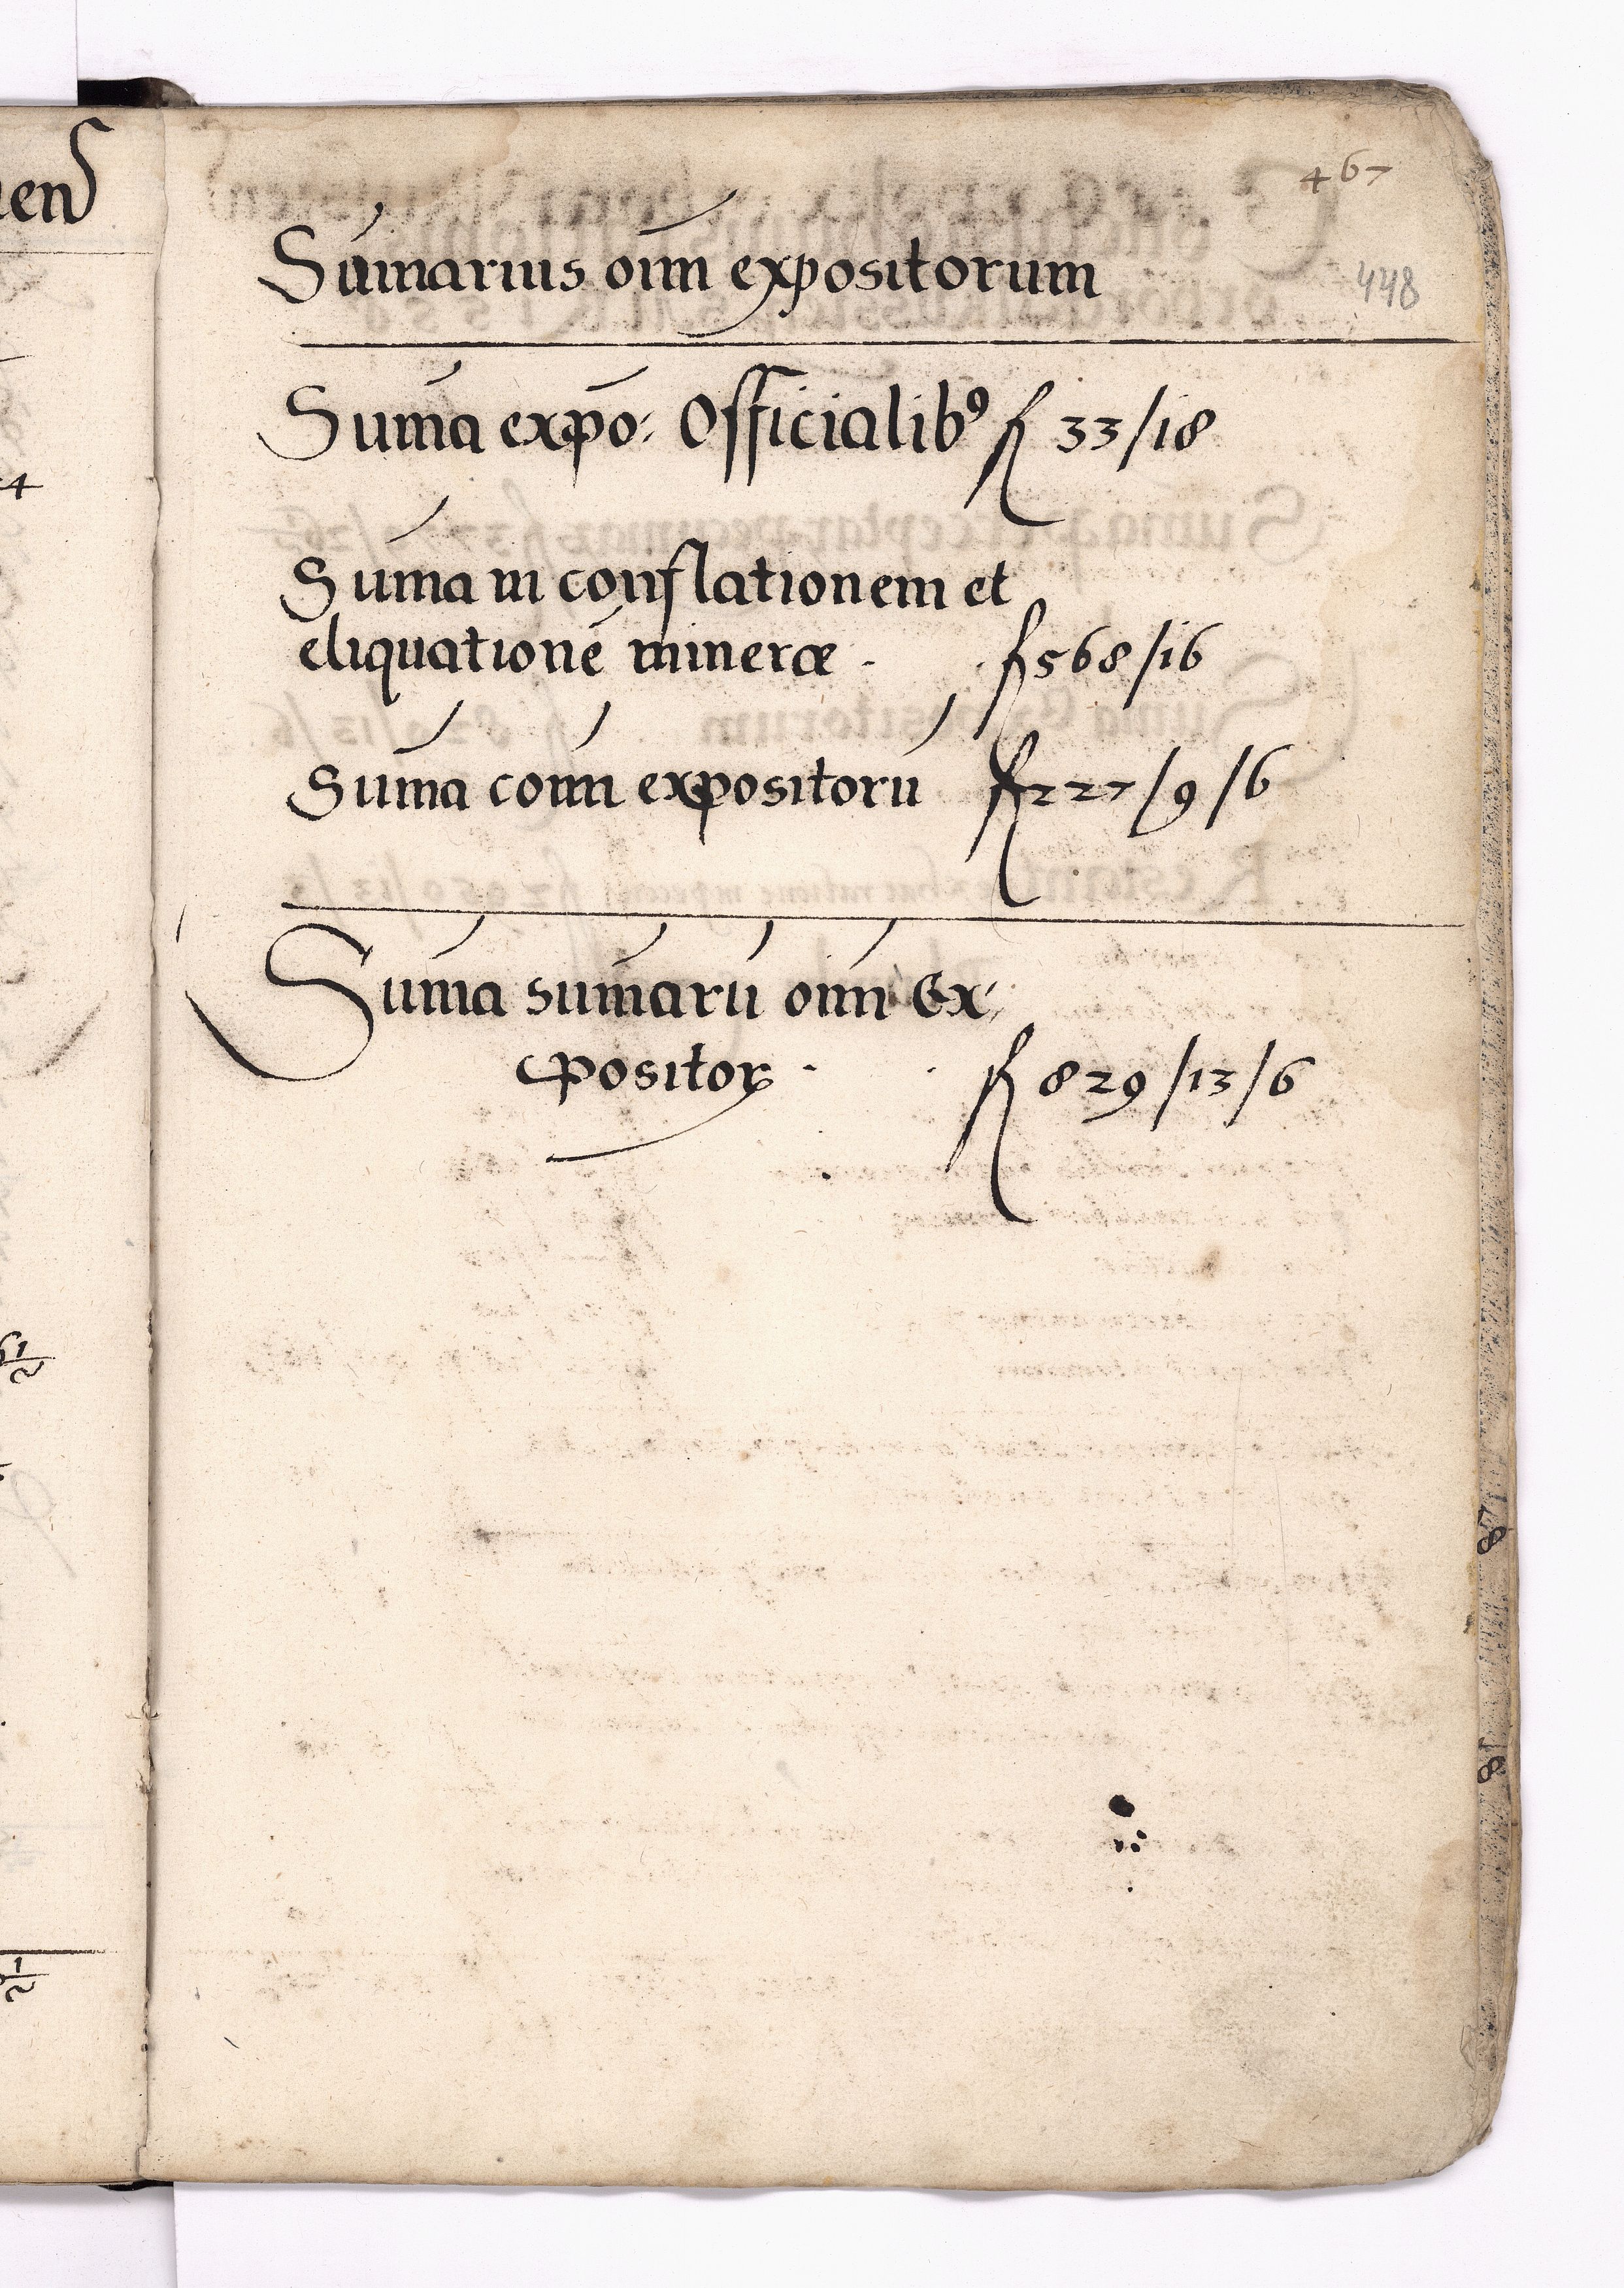 467
Sūmarius oīm expositorum
448
Sum̄a expō: Officialibꝰ fl 33/18
Sum̄a in conflationem et
eliquationē minerœ - fl 568/16
Sum̄a cōm̄ expositorū fl 227/9/6
Sum̄a sum̄arū oīm Ex:
positoꝝ - fl 829/13/6